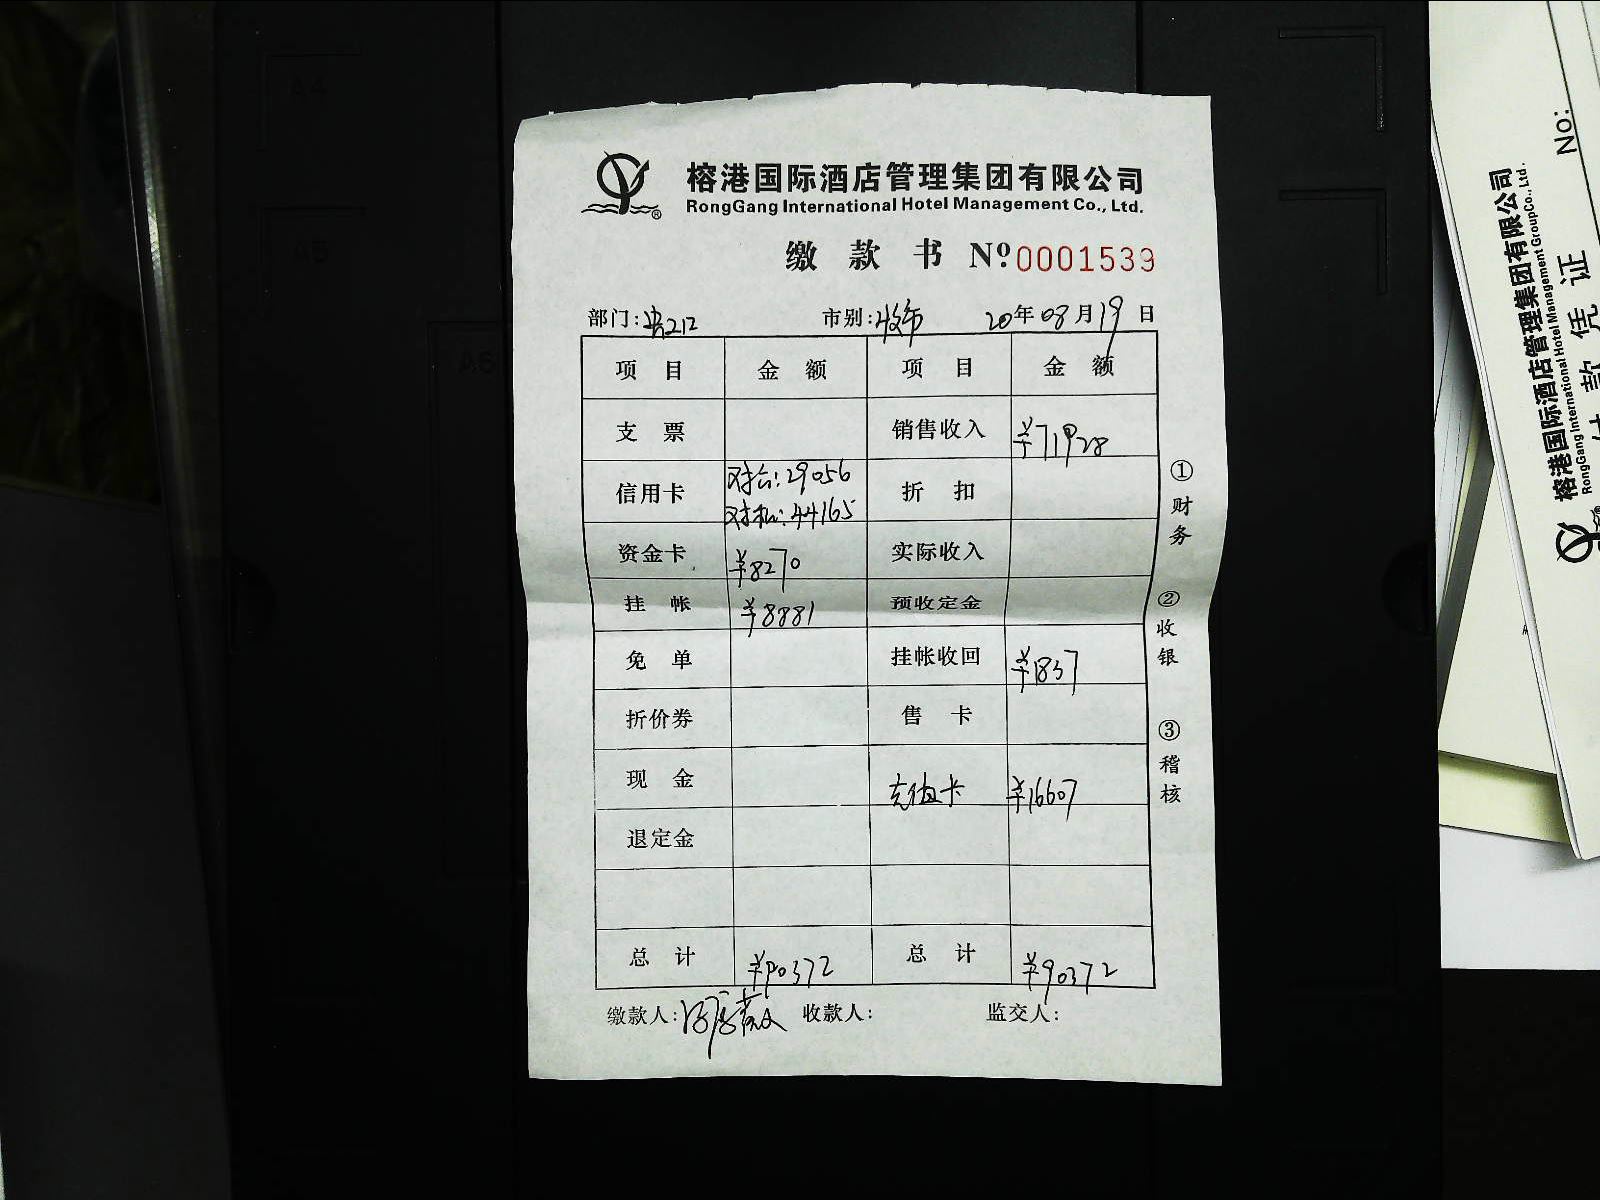 榕港国际酒店管理集团有限公司
RongGang International Hotel Management Co., Ltd.
缴款书 № 0001539
部门: 市别: 20年08月19日
项目 金额 项目 金额
支票 销售收入 ¥71928
信用卡 对台:29056 折扣
对私:44165
资金卡 ¥8270 实际收入
挂帐 ¥8881 预收定金
免单 挂帐收回 ¥1837
折价券 售卡
现金 充值卡 ¥16607
退定金
总计 ¥90372 总计 ¥90372
缴款人: 收款人: 监交人:
①财务
②收银
③稽核
榕港国际酒店管理集团有限公司
RongGang International Hotel Management GroupCo., Ltd.
款凭证
No:
A4
A5